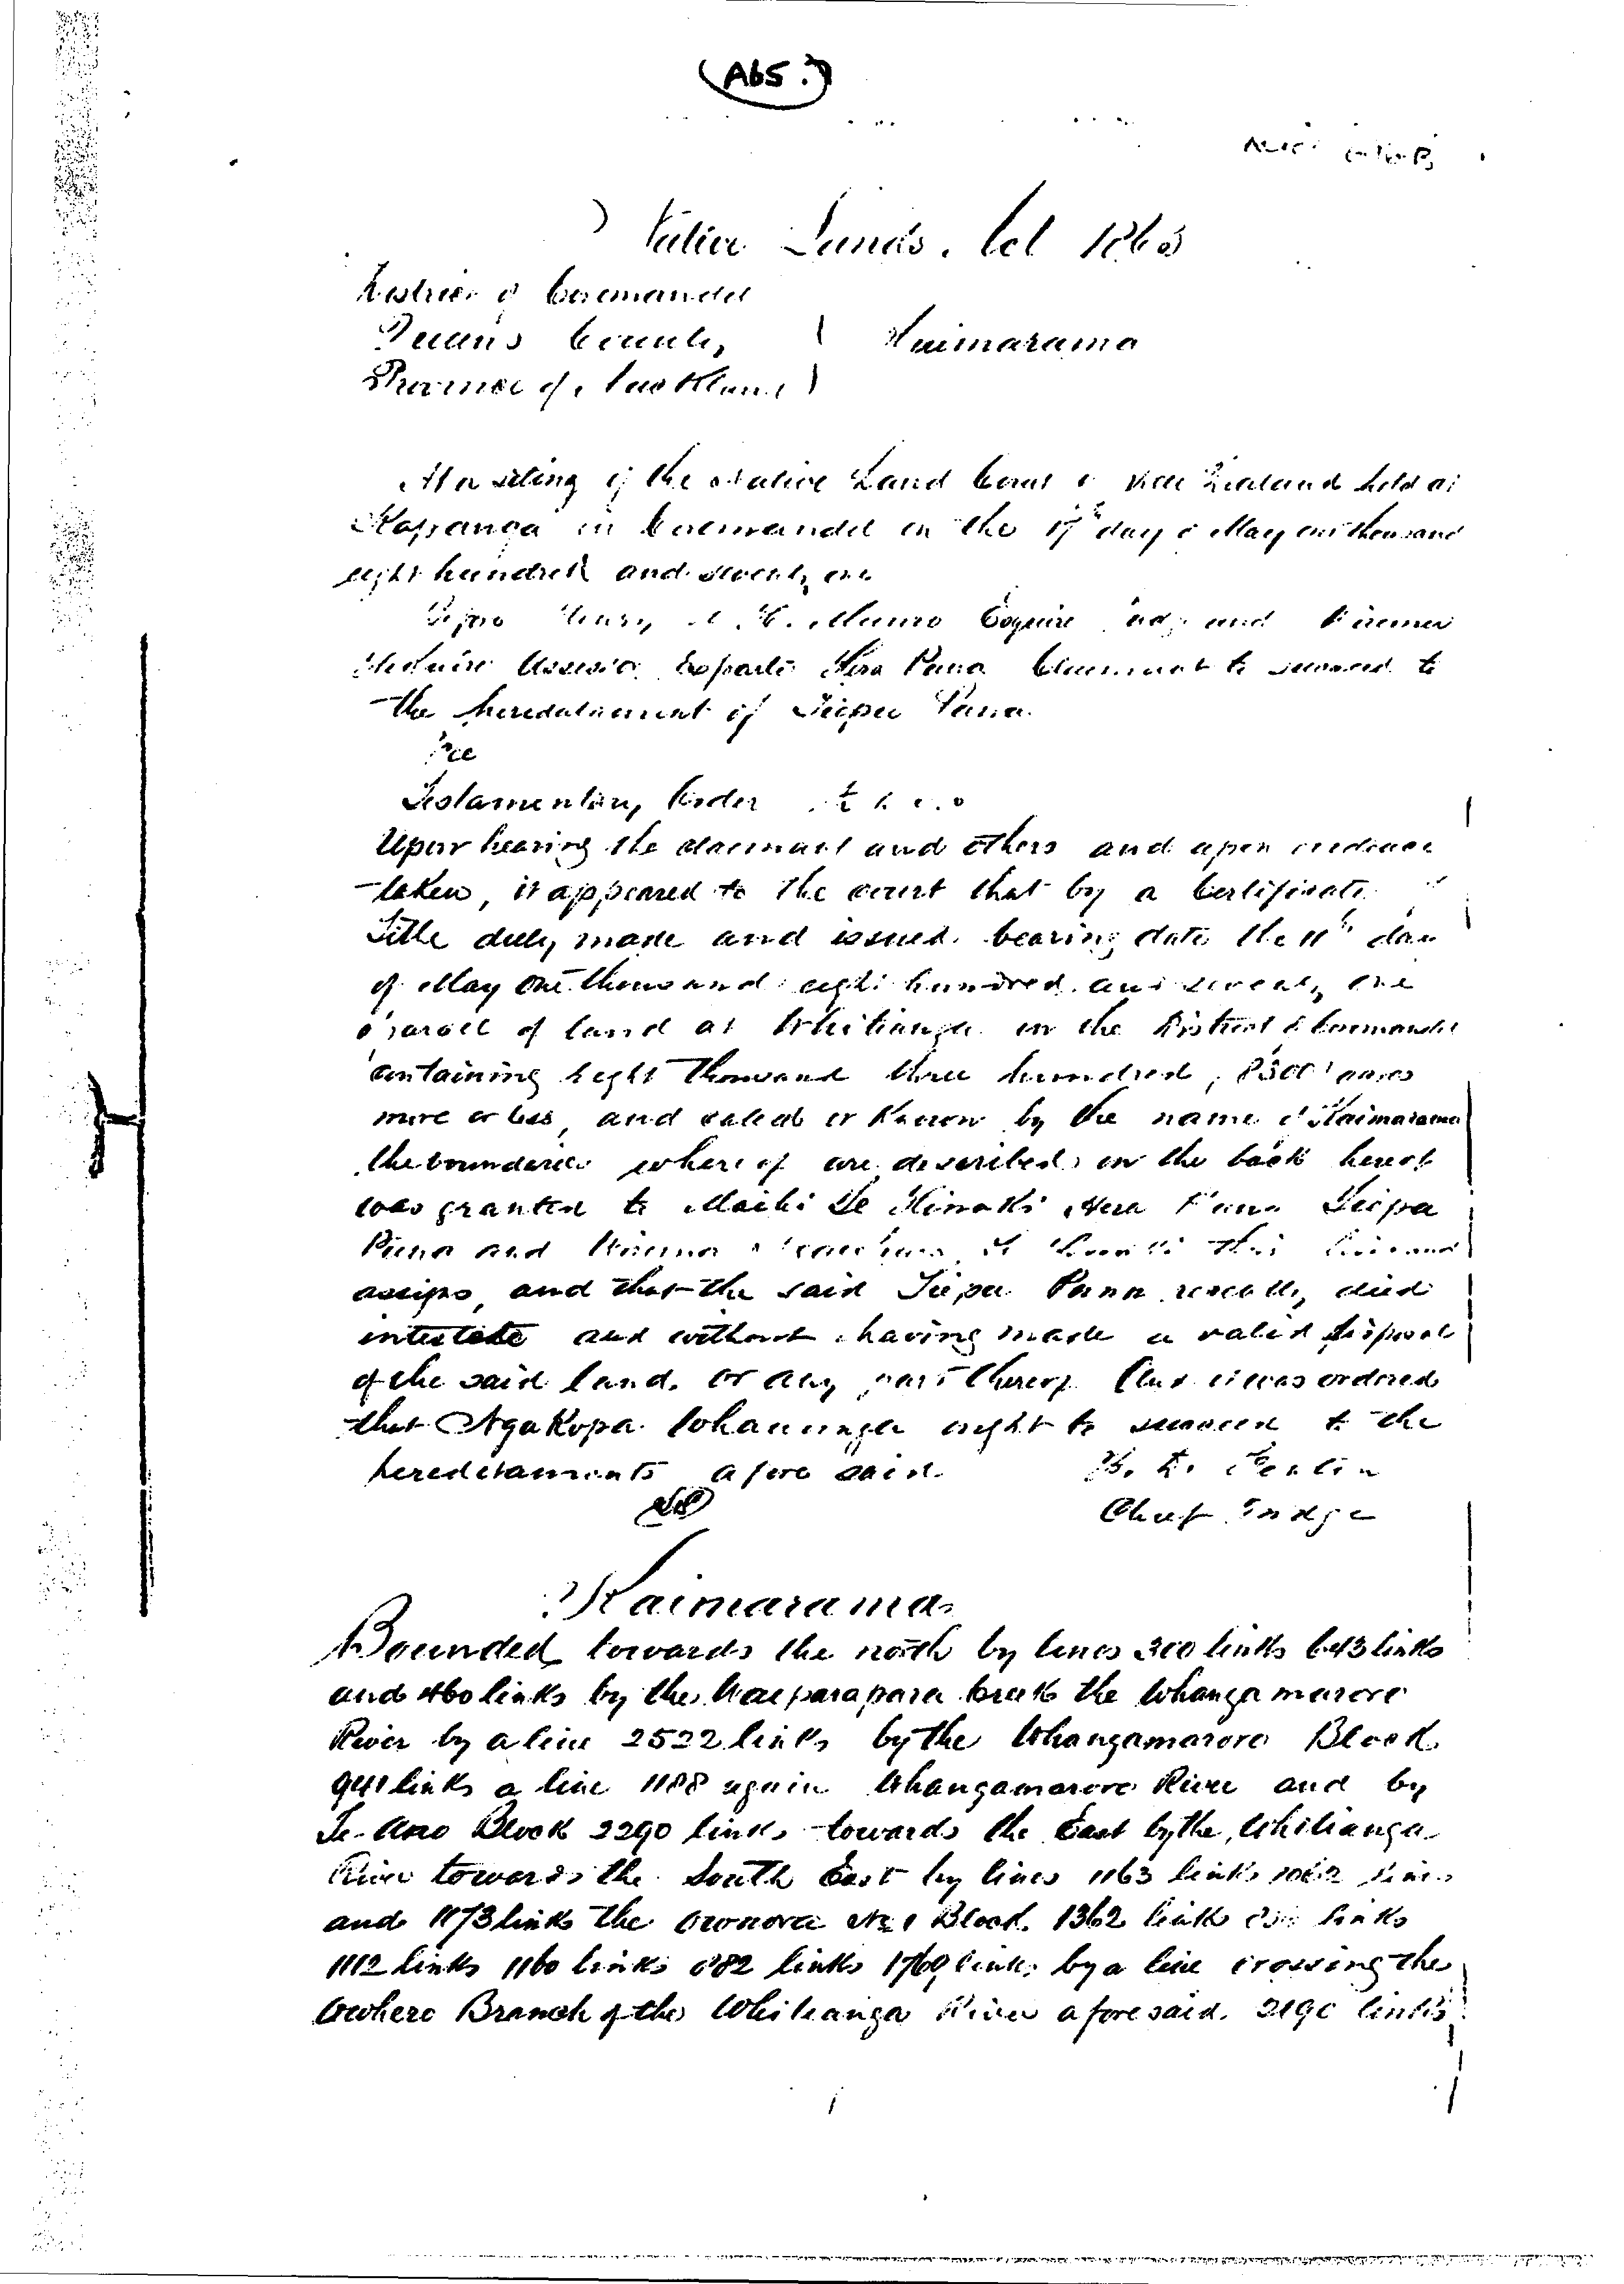 (Abs.)
Native Lands Act 1865
District of Coromandel
County
Kaimarama
Province of Auckland
At a sitting of the Native Land Court of New Zealand held at
Kapanga in Coromandel on the 17th day of May one thousand
eight hundred and seventy one
Before Henry Munro Esquire Judge and
Assessor Exparte Hera Puna Claimant to succeed to
the heredatament of Teipa Puna.
Testamentary Order
Upon hearing the claimant and others and upon evidence
taken, it appeared to the court that by a Certificate
Title duly made and issued bearing date the 11th day
of May one thousand eight hundred and seventy one
parcel of land at Whitianga in the District of Coromandel
containing Eight Thousand three hundred, 8300 acres
more or less, and called or known by the name of Kaimarama
the bounderies whereof are described on the back hereof
was granted to Maihi Te Hinaki Hera Puna Teipa
Puna and
assigns, and that the said Teipa Puna recently died
intestate and without having made a valid disposal
of the said land, or any part thereof. And it was ordered
that Ngakopa Whaunga ought to succeed to the
hereditaments afore said.
Chief Judge
Kaimarama
Bounded towards the north by lines 300 links 643 links
and 460 links by the Waiparapara Creek the Whangamarore
River by a line 2522 links by the Whangamaroro Block
941 links a line 1188 again Whangamaroro River and by
Te Aroo Block 2290 links towards the East by the Whitianga
River towards the South East by lines 1163 links 1062 links
and 1173 links the Block 1362 links links
1112 links 1160 links 682 links 1760 links by a line crossing the
Owhero Branch of the Whitianga River aforesaid. 2190 links